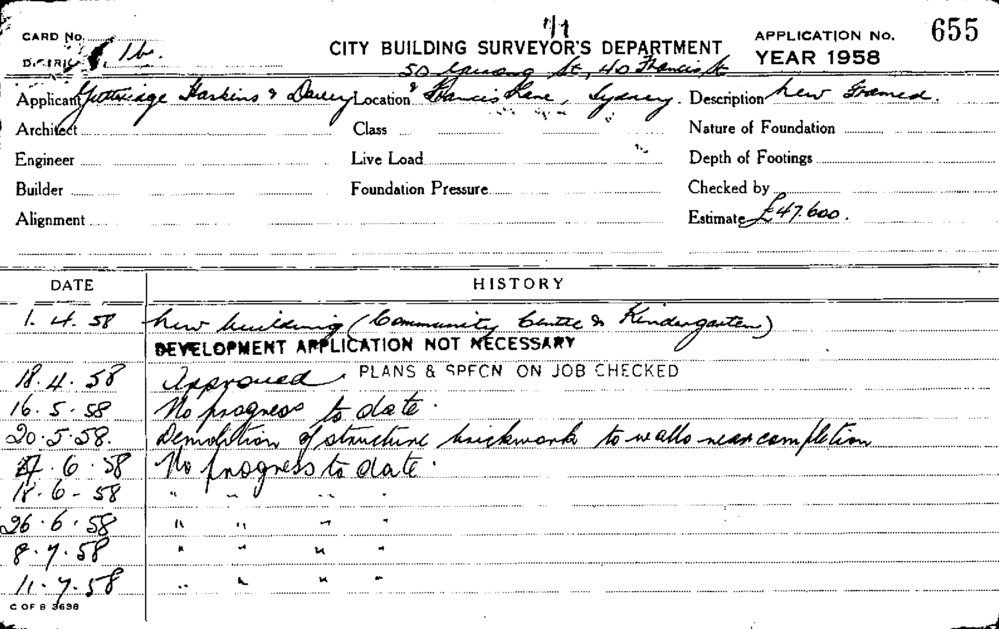 1/1
CARD No. 655
DISTRICT 1b. CITY BUILDING SURVEYOR'S DEPARTMENT APPLICATION No.
50 St, 40 Francis St YEAR 1958
Applicant Guttridge Haskins & Davey Location & Francis Lane, Sydney. Description New Framed.
Architect Class Nature of Foundation
Engineer Live Load Depth of Footings
Builder Foundation Pressure Checked by
Alignment Estimate £47.600.
DATE HISTORY
1. 4. 58 New building (Community Centre & Kindergarten)
DEVELOPMENT APPLICATION NOT NECESSARY
18. 4. 58 Approved. PLANS & SPFCN ON JOB CHECKED
16. 5. 58 No progress to date.
20. 5. 58. Demolition of structure brickwork to walls near completion
6. 58 No progress to date.
18. 6 - 58 " " " "
26. 6. 58 " " " "
8. 7. 58 " " " "
11. 7. 58 " " " "
C OF B 3638